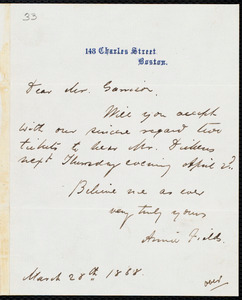 33
148 Charles Street.
Boston.
Dear Mr. Garrison.
Will you accept
with our sincere regard two
tickets to hear Mr. Dickens
next Thursday evening April 2d.
Believe me as ever
very truly yours
Annie Fields.
March 28th 1868.